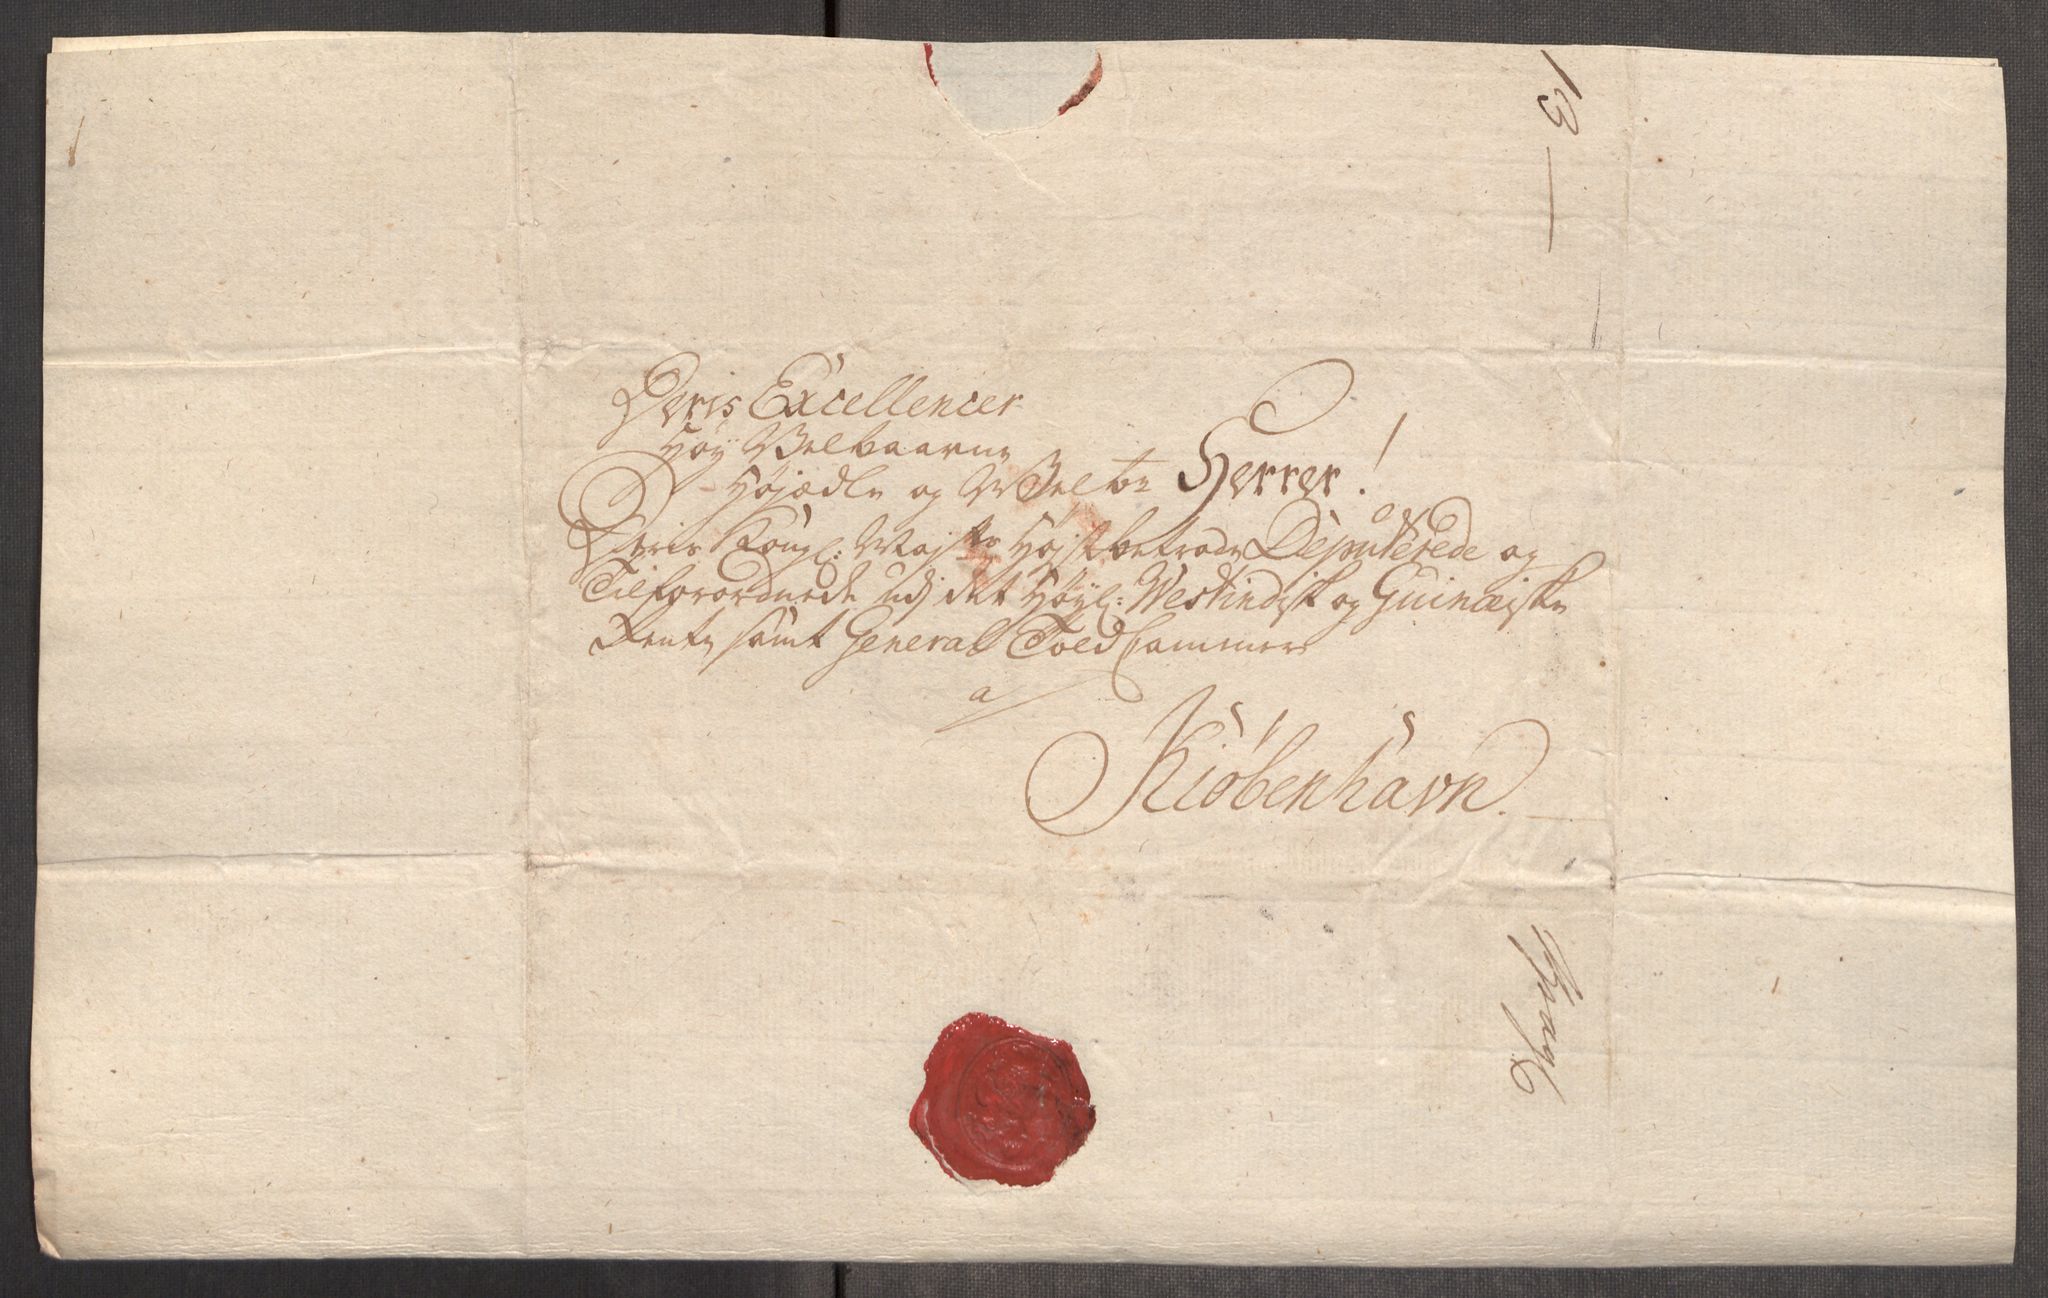 Deris Excellencer
Høy Velbaarne
Højædle og Velbr Herrer!
Deris Kongl: Majsts Højstbetrode Deputerede og
Tilforordnede udj det Høyl: Westindisk og Guinæiske
Rente samt General Told Cammer
a
Kiøbenhavn.
13 —